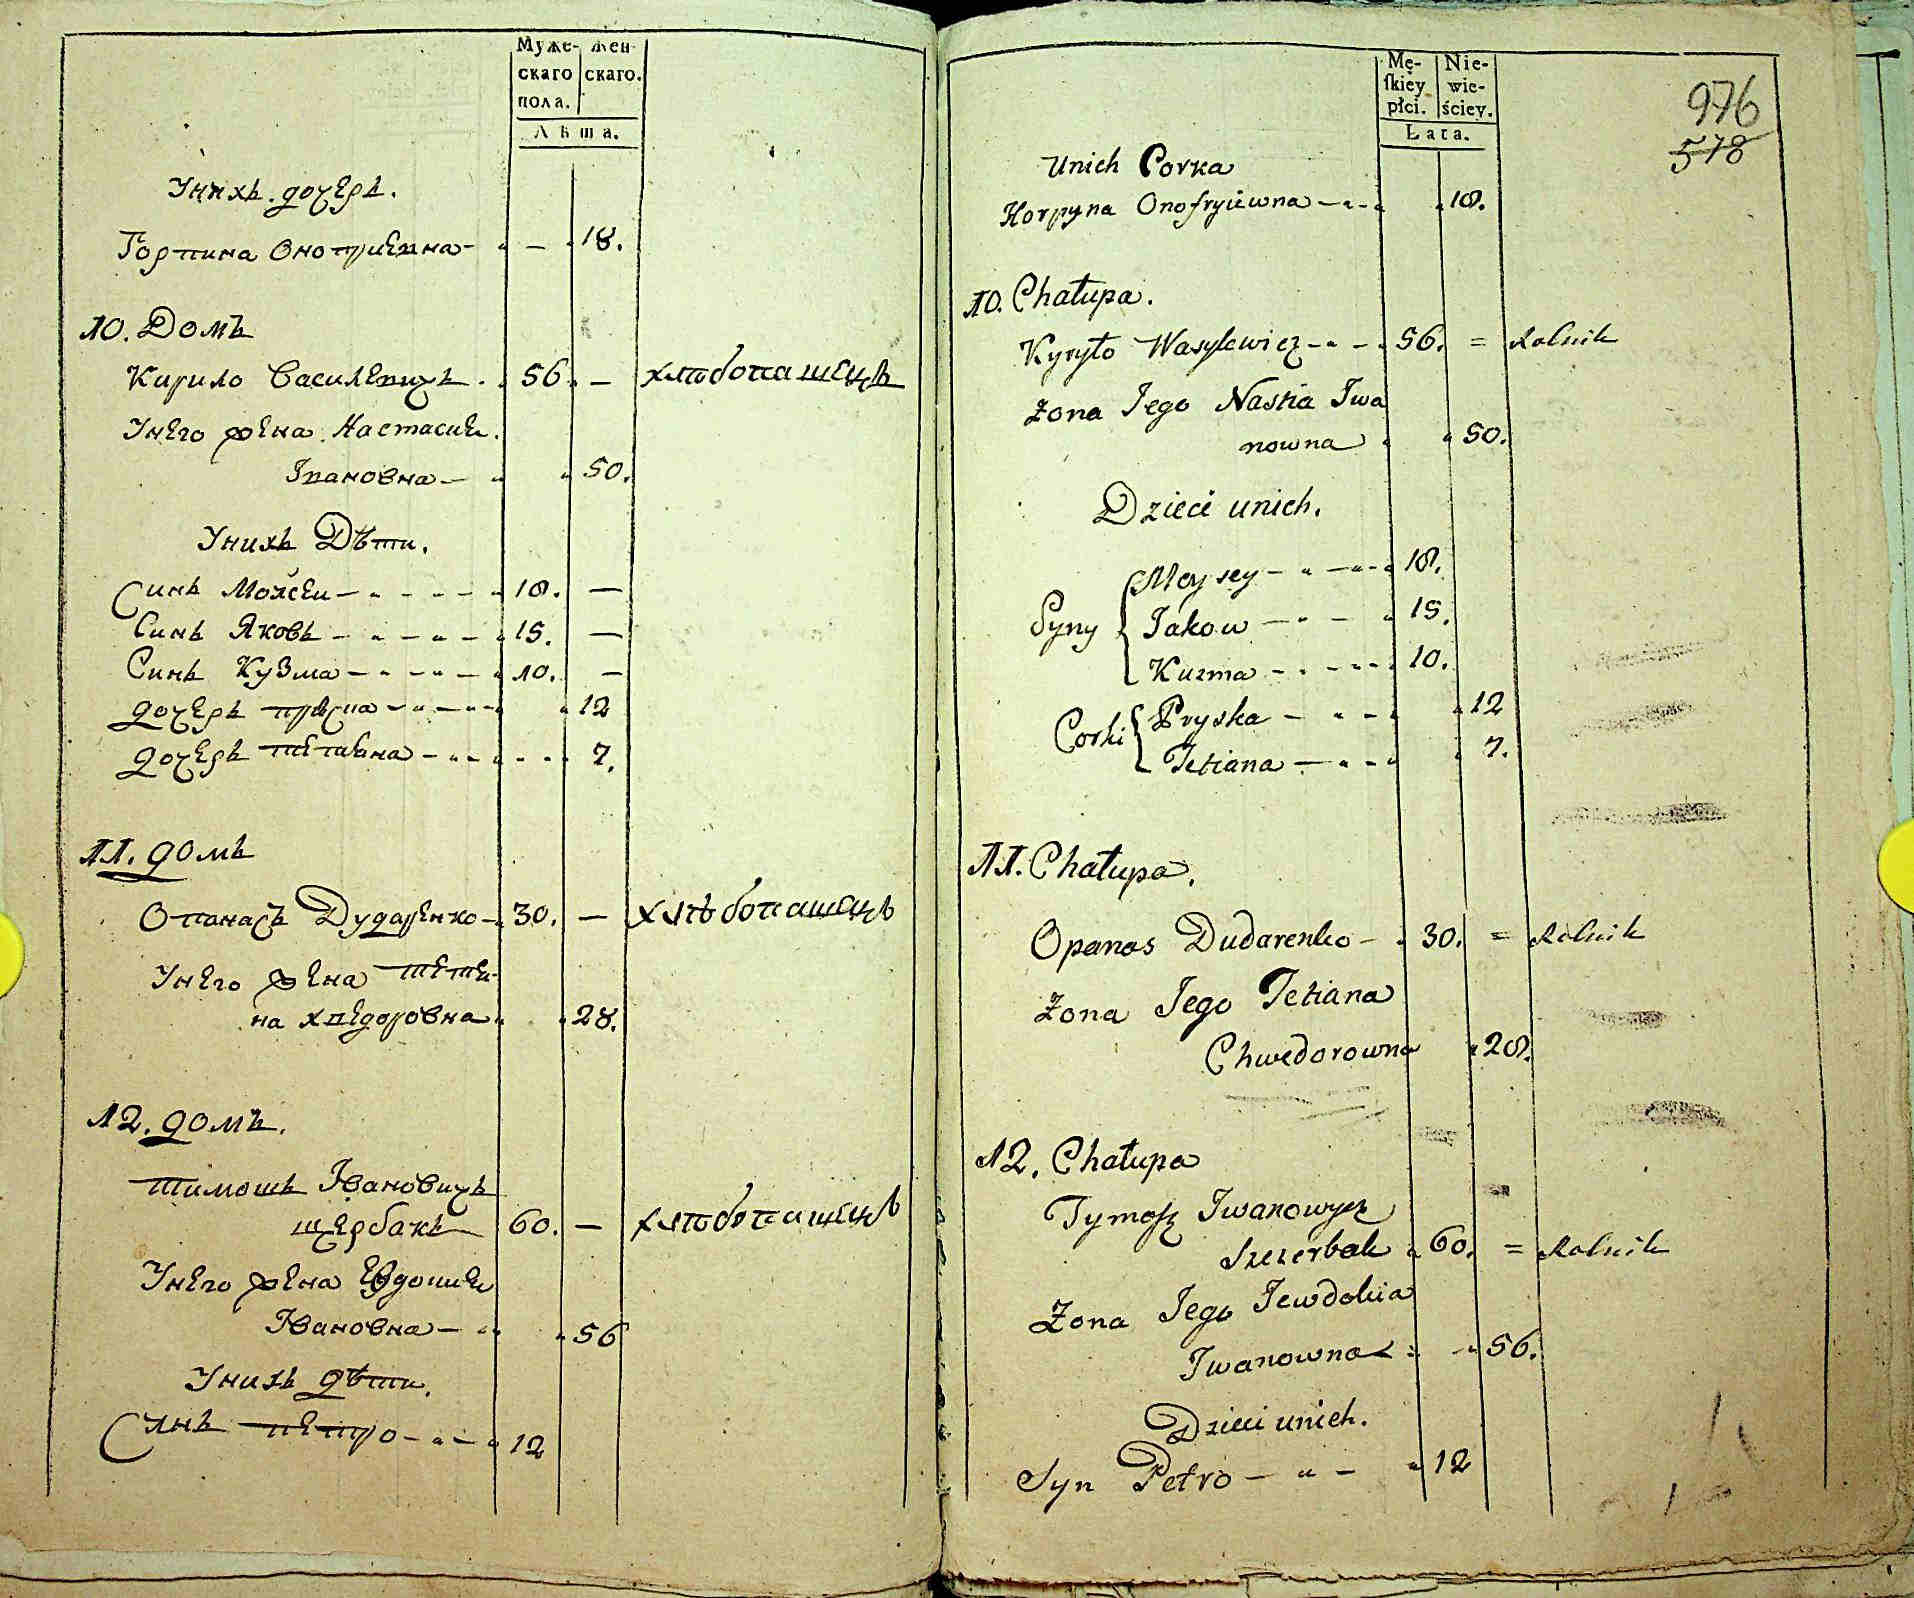 Муже- Жен-
скаго скаго.
пола.
Лѣта.
Унихъ дочеръ.
Горпина Оноприевна - - 18.
10. Домъ
Кирило Василевичъ 56. — хлѣбопашецъ
Унего жена Настасия
Ивановна — 50.
Унихъ Дѣти.
Синъ Мойсей — 18. —
Синъ Яковъ — 15. —
Синъ Кузма — 10. —
дочеръ приска — 12
дочеръ тетяна — 7.
11. домъ
Опанасъ Дударенко — 30. — хлѣбопашецъ
Унего жена тетя-
на хведоровна 28.
12. домъ.
тимошъ Ивановичъ
щербакъ 60. — хлѣбопашецъ
Унего жена Евдокия
Ивановна — 56
Унихъ дѣти.
Синъ петро — 12
Mę- Nie-
skiey wie-
płci. ściey.
Lata.
976
578
unich Corka
Horpyna Onofryiewna — 18.
10. Chałupa.
Kyryło Wasylewicz — 56. = Rolnik
Zona Jego Nastia Iwa
nowna 50.
Dzieci unich.
Syny
Moysey — 18.
Jakow — 15.
Kuzma — 10.
Corki
Pryska — 12
Tetiana — 7.
11. Chałupa.
Opanas Dudarenko — 30. = Rolnik
Zona Jego Tetiana
Chwedorowna 28.
12. Chałupa
Tymosz Iwanowycz
Szczerbak 60. = Rolnik
Zona Jego Jewdokia
Iwanowna 56.
Dzieci unich.
Syn Petro — 12